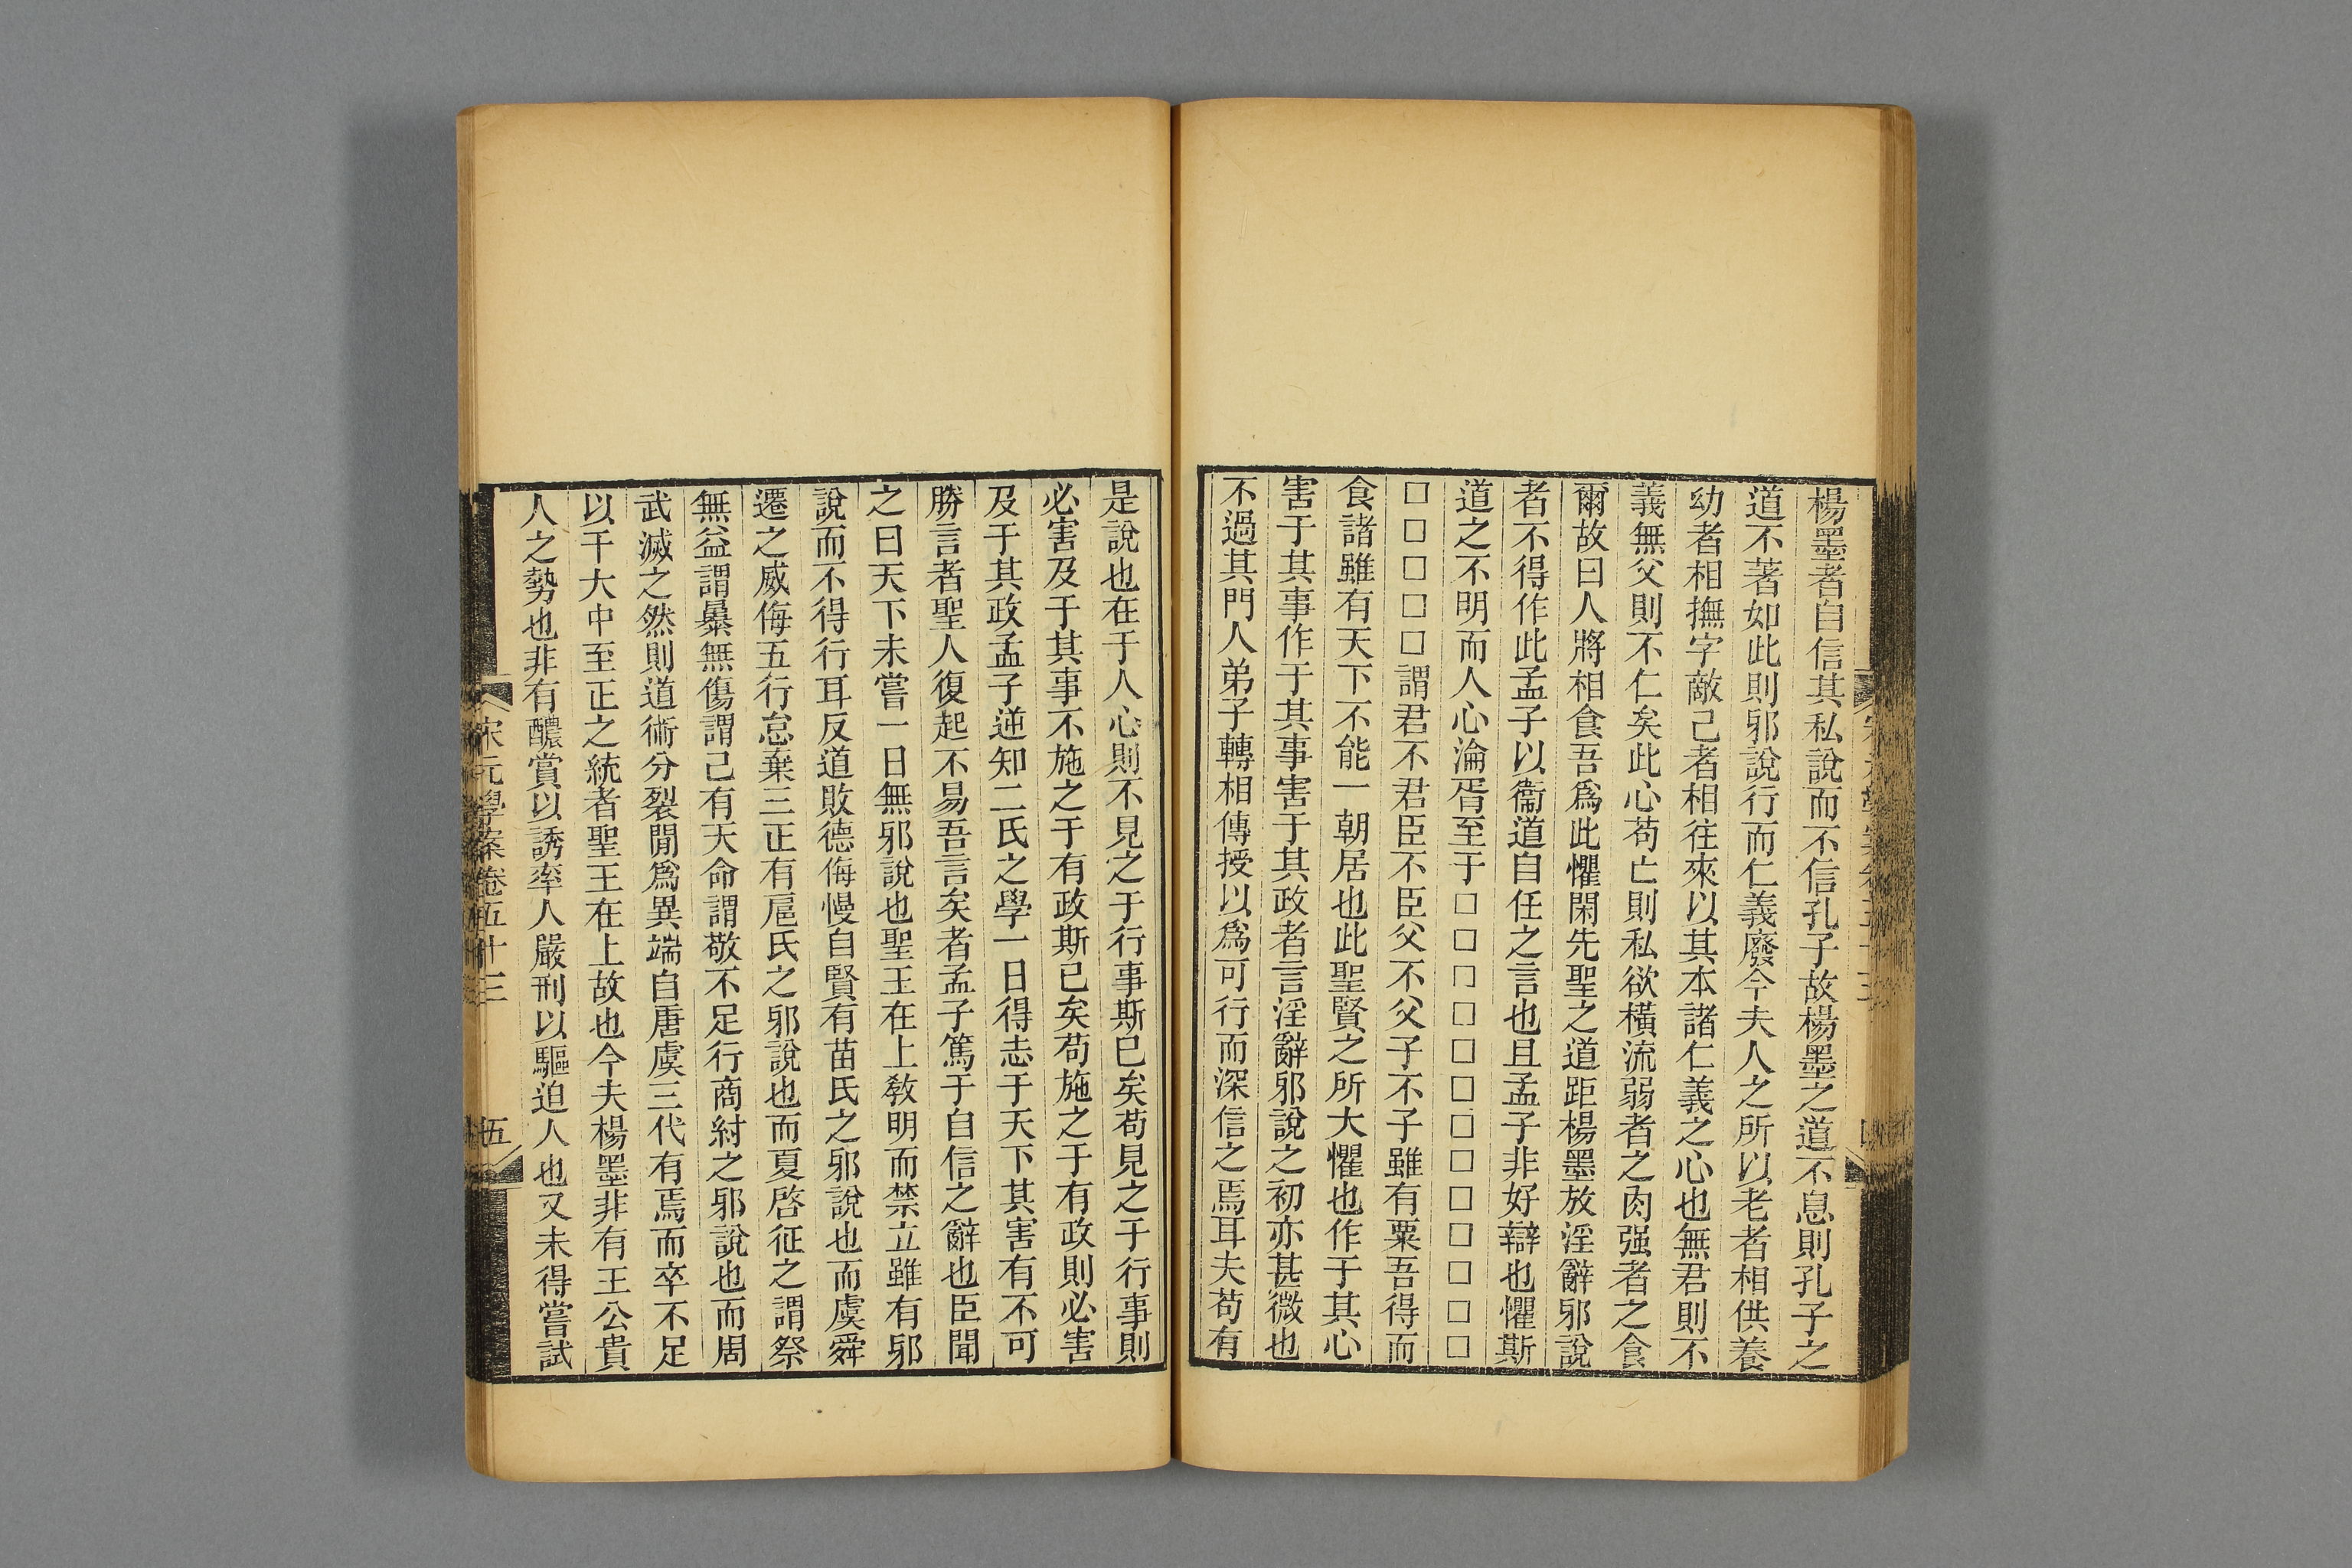 楊墨者自信其私說而不信孔子故楊墨之道不息則孔子之
道不著如此則邪說行而仁義廢今夫人之所以老者相供養
幼者相撫字敵己者相往來以其本諸仁義之心也無君則不
義無父則不仁矣此心苟亡則私欲橫流弱者之肉强者之食
爾故曰人將相食吾爲此懼閑先聖之道距楊墨放淫辭邪說
者不得作此孟子以衞道自任之言也且孟子非好辯也懼斯
道之不明而人心淪胥至于□□□□□□□□□□□□□
□□□□□謂君不君臣不臣父不父子不子雖有粟吾得而
食諸雖有天下不能一朝居也此聖賢之所大懼也作于其心
害于其事作于其事害于其政者言淫辭邪說之初亦甚微也
不過其門人弟子轉相傳授以爲可行而深信之焉耳夫苟有
是說也在于人心則不見之于行事斯已矣苟見之于行事則
必害及于其事不施之于有政斯已矣苟施之于有政則必害
及于其政孟子逆知二氏之學一日得志于天下其害有不可
勝言者聖人復起不易吾言矣者孟子篤于自信之辭也臣聞
之曰天下未嘗一日無邪說也聖王在上教明而禁立雖有邪
說而不得行耳反道敗德侮慢自賢有苗氏之邪說也而虞舜
遷之威侮五行怠棄三正有扈氏之邪說也而夏啓征之謂祭
無益謂暴無傷謂己有天命謂敬不足行商紂之邪說也而周
武滅之然則道術分裂閒爲異端自唐虞三代有焉而卒不足
以干大中至正之統者聖王在上故也今夫楊墨非有王公貴
人之勢也非有醲賞以誘率人嚴刑以驅迫人也又未得嘗試
宋元學案卷五十三
五